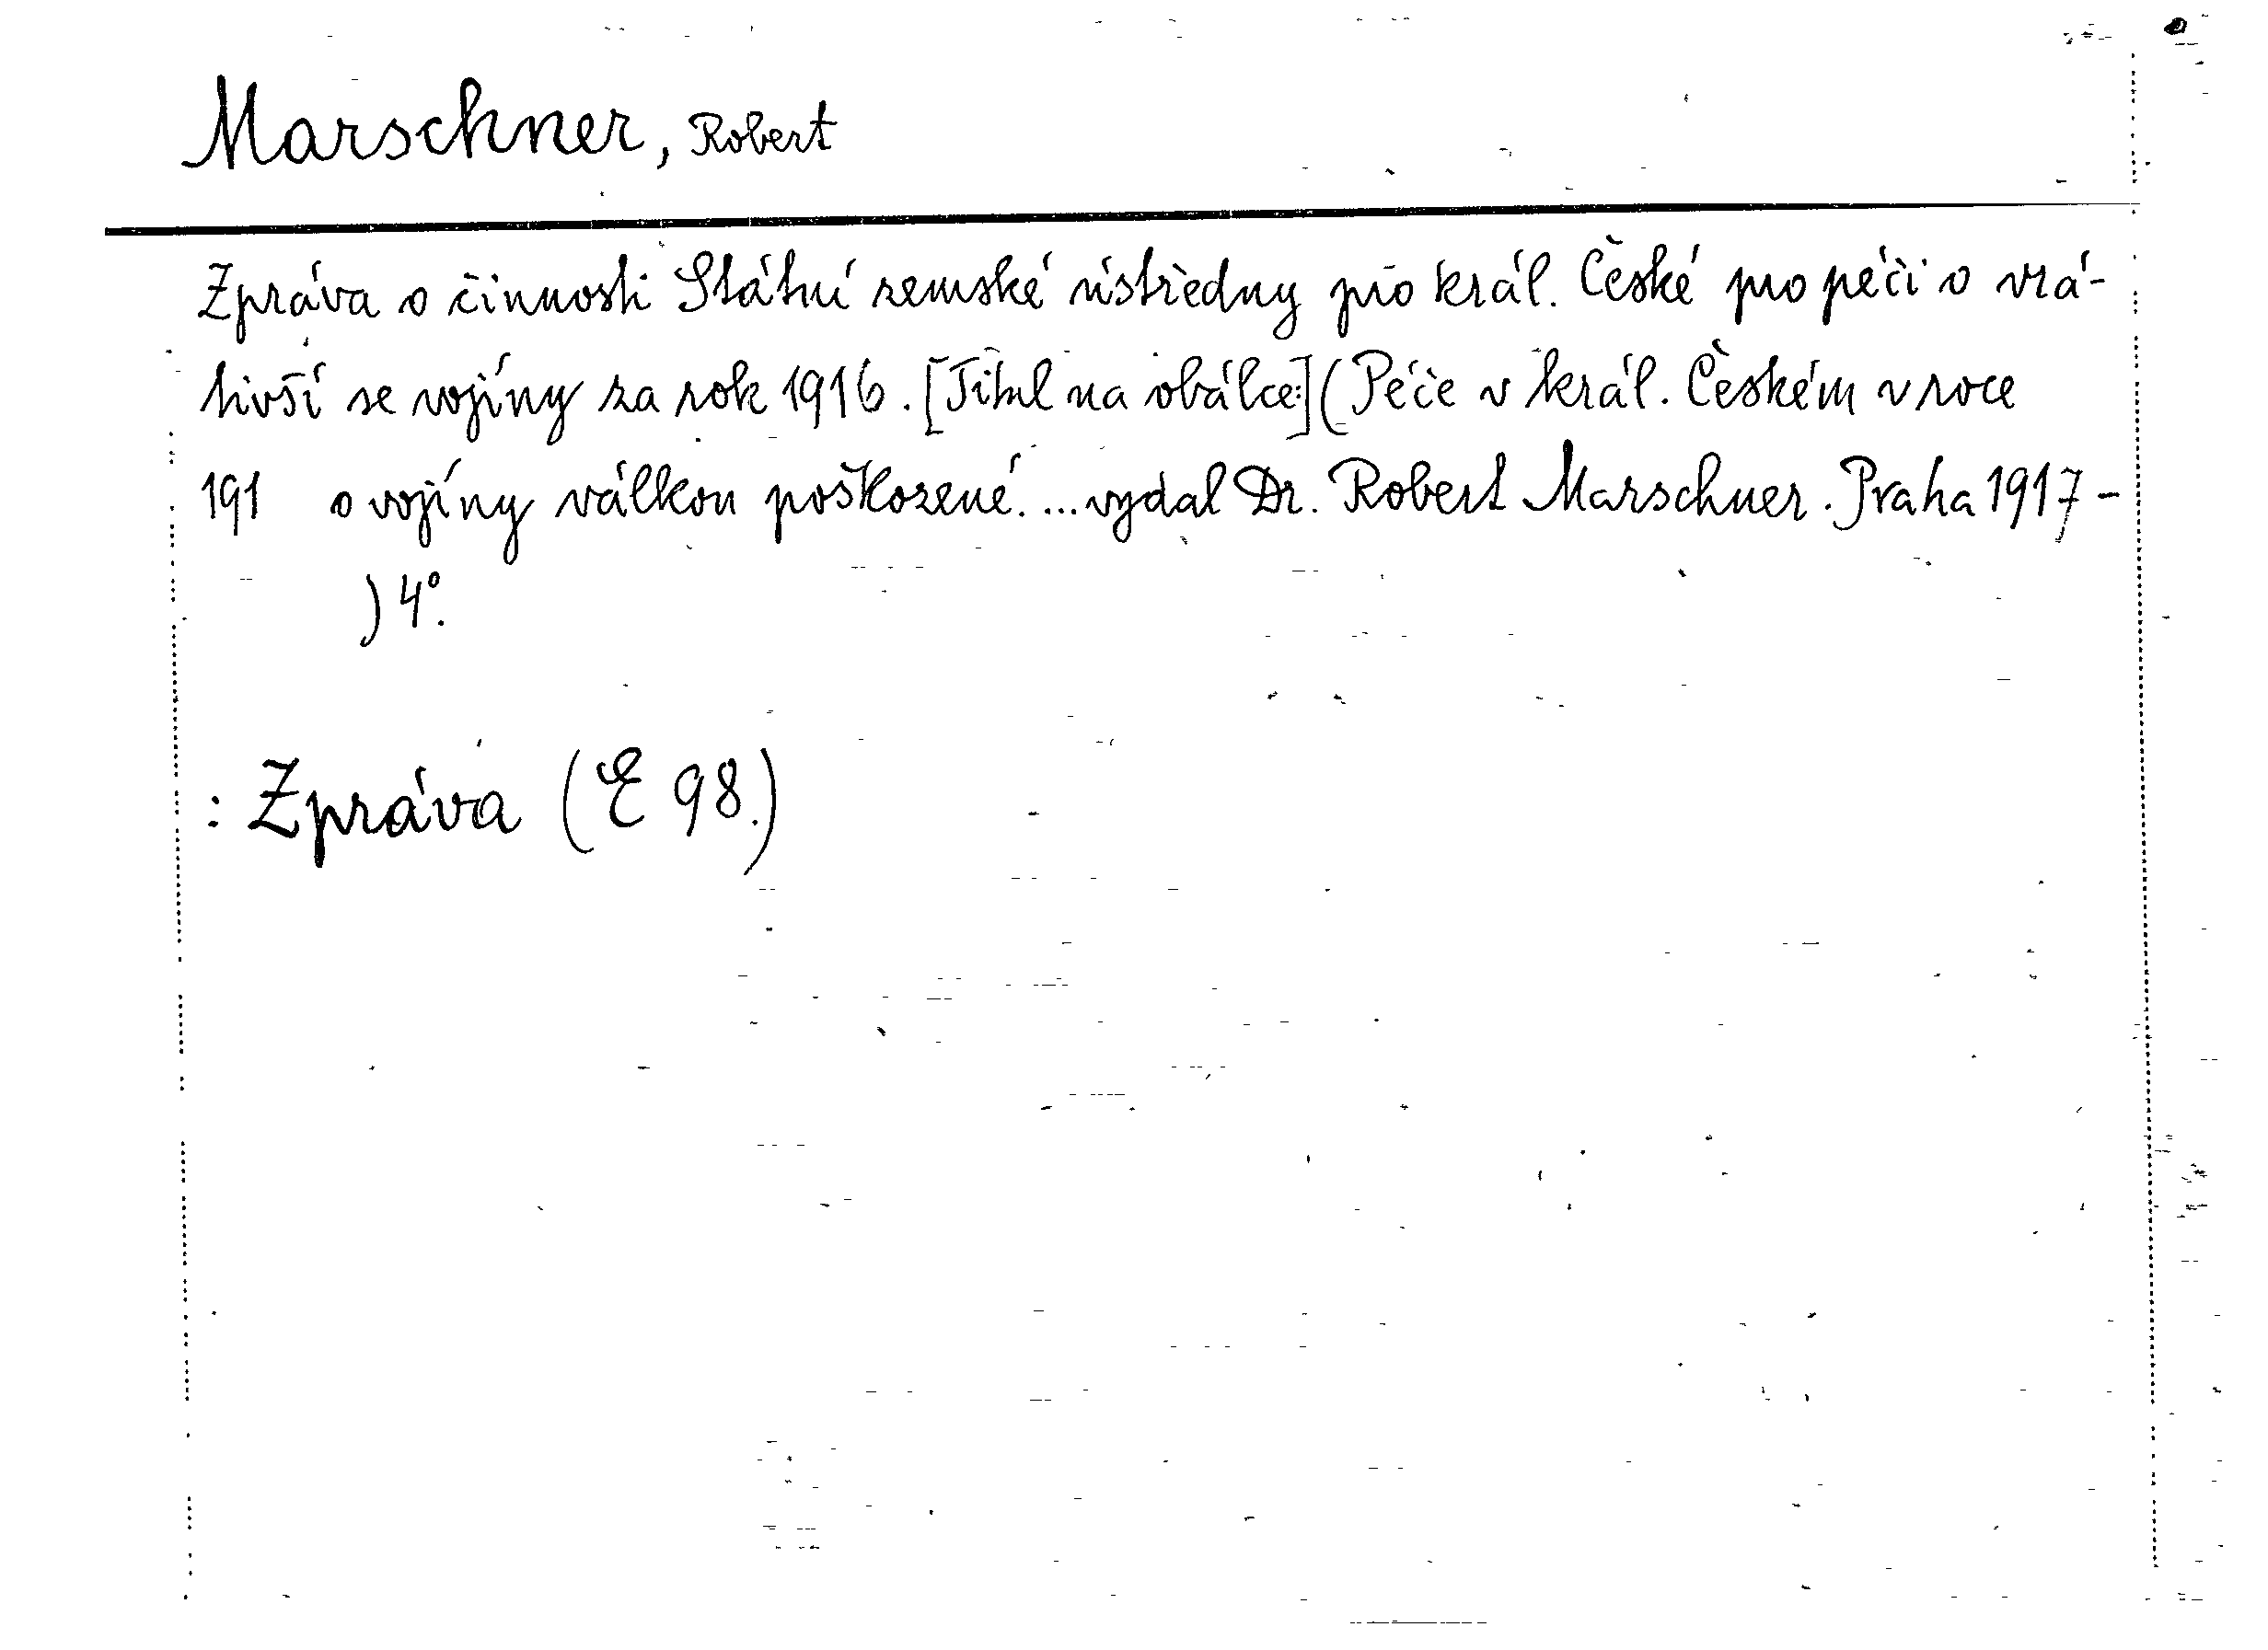 Marschner, Robert
Zpráva o činnosti Státní zemské ústředny pro král. České pro péči o vrá-
tivší se vojíny za rok 1916. [Titul na obálce:] (Péče v král. Českém v roce
191 o vojíny válkou poškozené. ... vydal Dr. Robert Marschner. Praha 1917-
) 4°.
: Zpráva (E 98.)